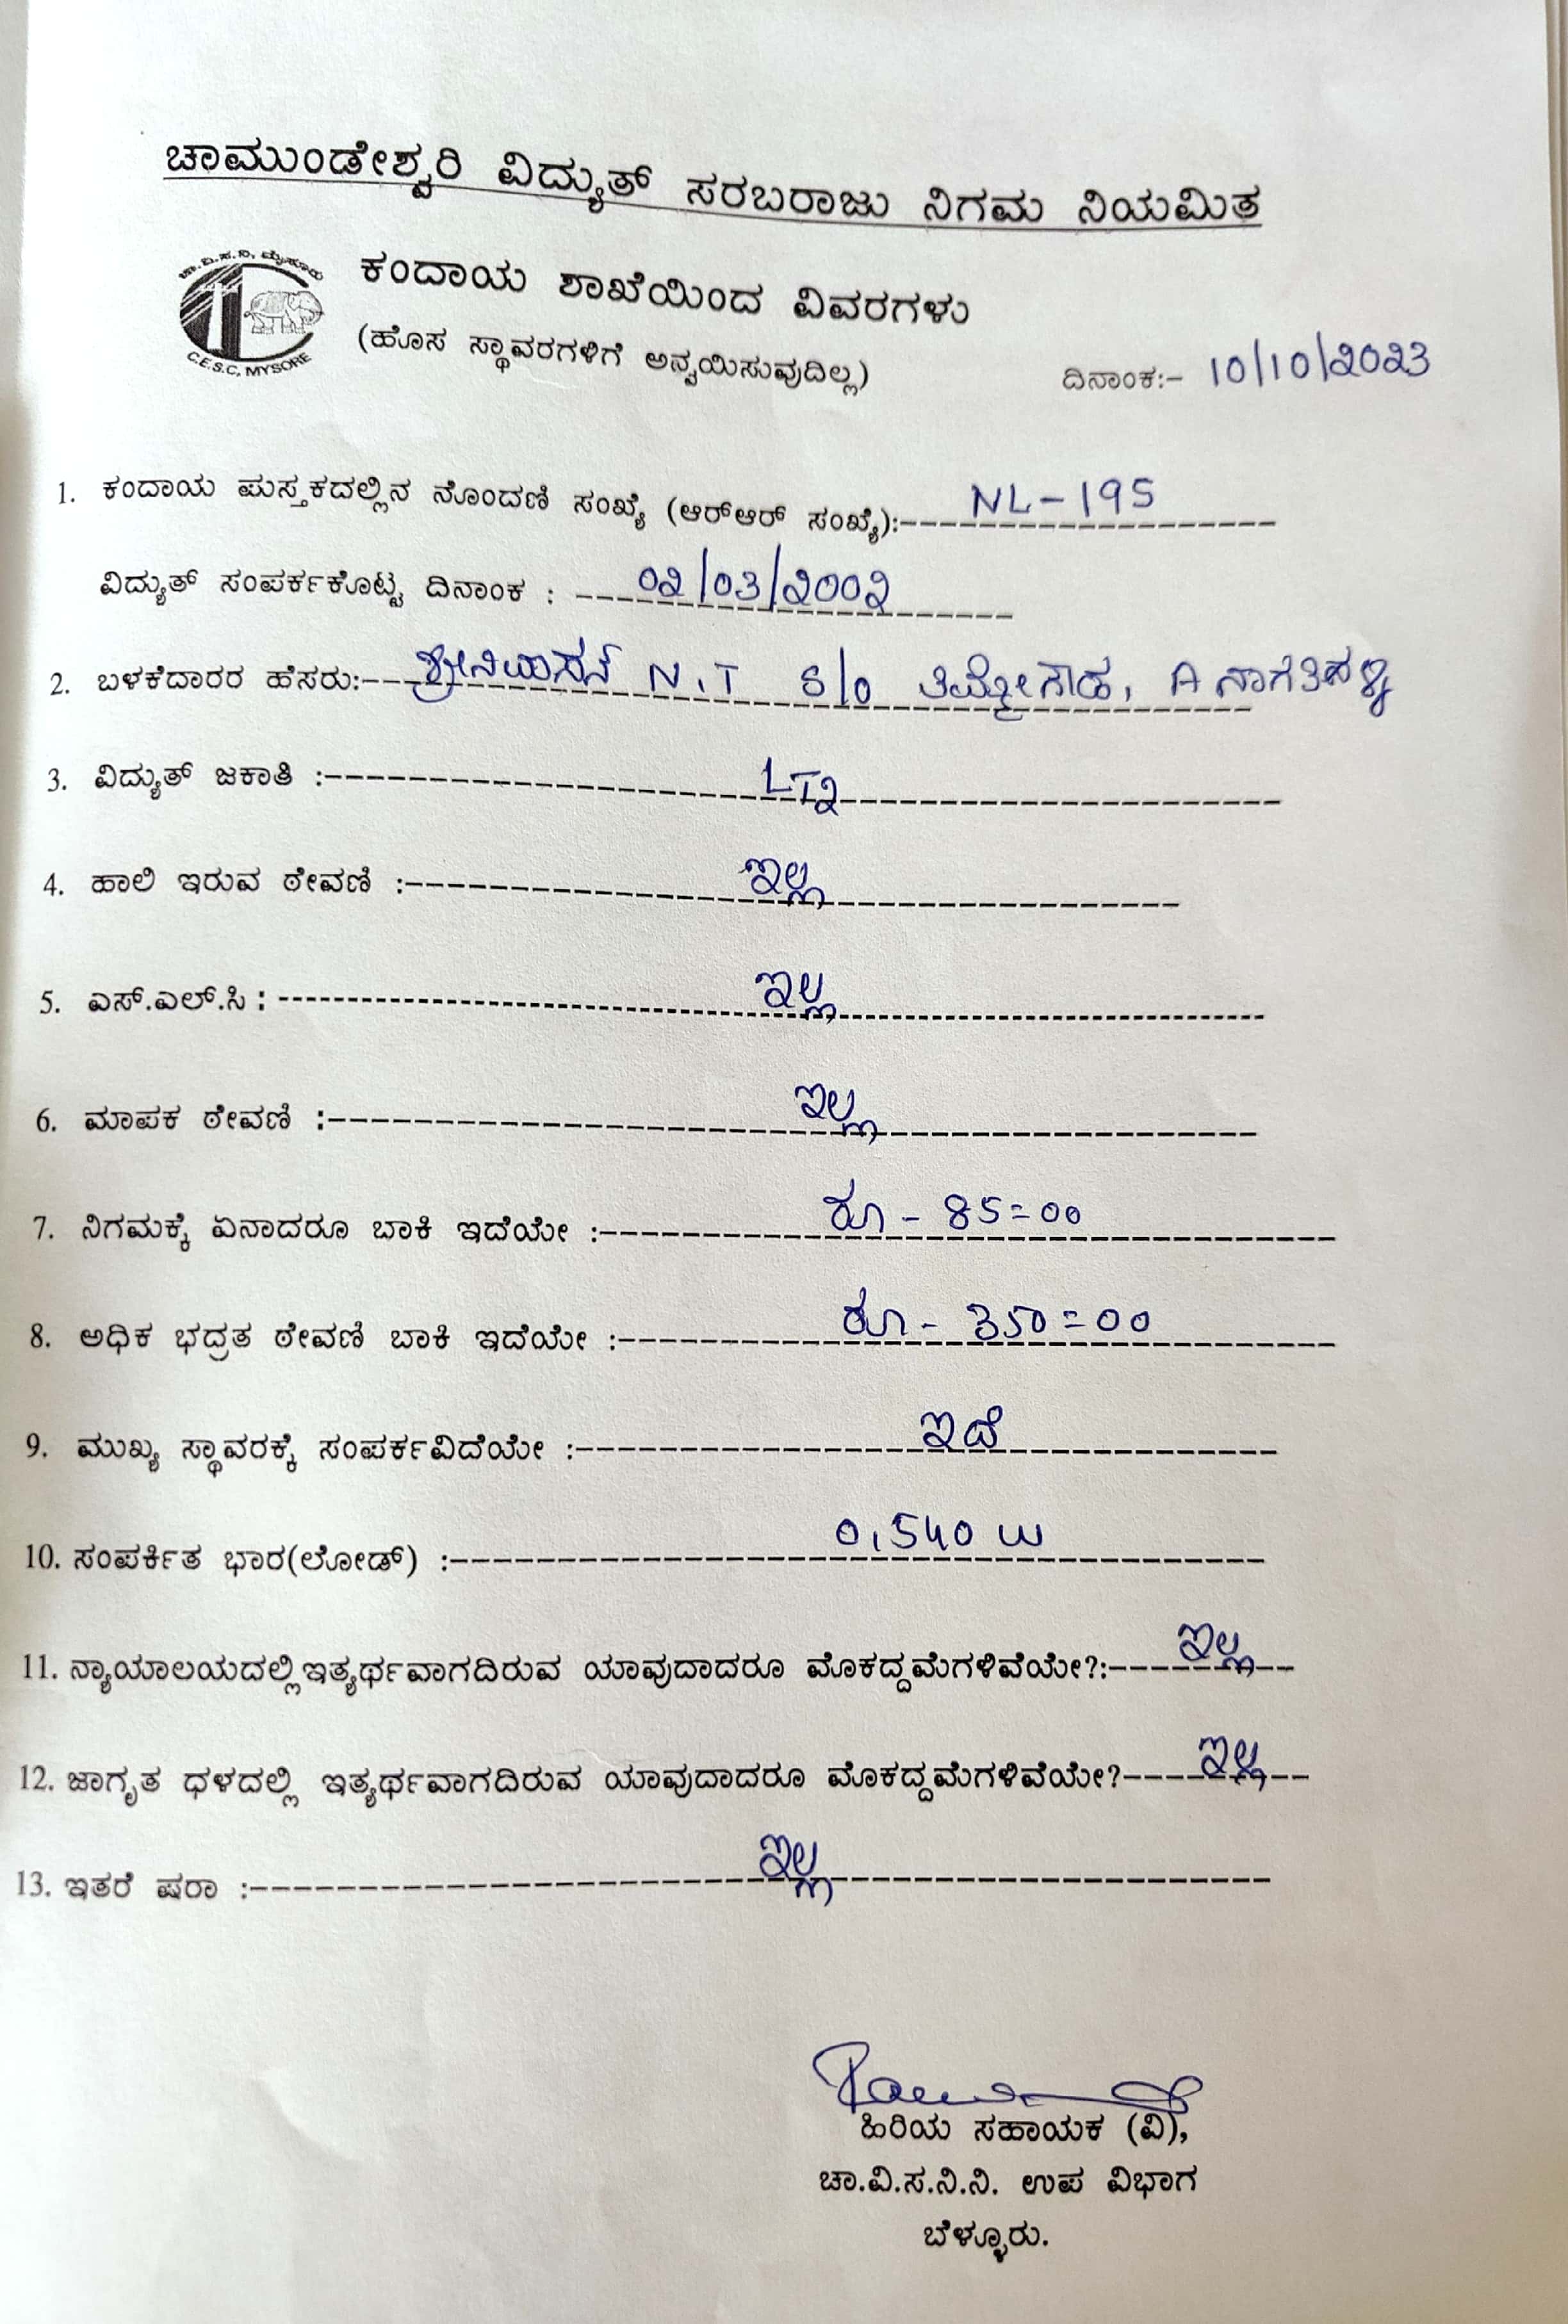 ಚಾಮುಂಡೇಶ್ವರಿ ವಿದ್ಯುತ್ ಸರಬರಾಜು ನಿಗಮ ನಿಯಮಿತ
ಚಾ.ವಿ.ಸ.ನಿ, ಮೈಸೂರು
C.E.S.C, MYSORE
ಕಂದಾಯ ಶಾಖೆಯಿಂದ ವಿವರಗಳು
(ಹೊಸ ಸ್ಥಾವರಗಳಿಗೆ ಅನ್ವಯಿಸುವುದಿಲ್ಲ)
ದಿನಾಂಕ:- 10/10/2023
1. ಕಂದಾಯ ಪುಸ್ತಕದಲ್ಲಿನ ನೊಂದಣಿ ಸಂಖ್ಯೆ (ಆರ್‌ಆರ್ ಸಂಖ್ಯೆ):- NL-195
ವಿದ್ಯುತ್ ಸಂಪರ್ಕಕೊಟ್ಟ ದಿನಾಂಕ : 02/03/2002
2. ಬಳಕೆದಾರರ ಹೆಸರು:- ಶ್ರೀನಿವಾಸನ್ N.T S/o ತಿಮ್ಮೇಗೌಡ, A ನಾಗತಿಹಳ್ಳಿ
3. ವಿದ್ಯುತ್ ಜಕಾತಿ :- LT2
4. ಹಾಲಿ ಇರುವ ಠೇವಣಿ :- ಇಲ್ಲ
5. ಎಸ್.ಎಲ್.ಸಿ : ಇಲ್ಲ
6. ಮಾಪಕ ಠೇವಣಿ :- ಇಲ್ಲ
7. ನಿಗಮಕ್ಕೆ ಏನಾದರೂ ಬಾಕಿ ಇದೆಯೇ :- ರೂ - 85=00
8. ಅಧಿಕ ಭದ್ರತ ಠೇವಣಿ ಬಾಕಿ ಇದೆಯೇ :- ರೂ - 350=00
9. ಮುಖ್ಯ ಸ್ಥಾವರಕ್ಕೆ ಸಂಪರ್ಕವಿದೆಯೇ :- ಇದೆ
10. ಸಂಪರ್ಕಿತ ಭಾರ(ಲೋಡ್) :- 0.540 W
11. ನ್ಯಾಯಾಲಯದಲ್ಲಿ ಇತ್ಯರ್ಥವಾಗದಿರುವ ಯಾವುದಾದರೂ ಮೊಕದ್ದಮೆಗಳಿವೆಯೇ?:- ಇಲ್ಲ
12. ಜಾಗೃತ ಧಳದಲ್ಲಿ ಇತ್ಯರ್ಥವಾಗದಿರುವ ಯಾವುದಾದರೂ ಮೊಕದ್ದಮೆಗಳಿವೆಯೇ?- ಇಲ್ಲ
13. ಇತರೆ ಷರಾ :- ಇಲ್ಲ
ಹಿರಿಯ ಸಹಾಯಕ (ವಿ),
ಚಾ.ವಿ.ಸ.ನಿ.ನಿ. ಉಪ ವಿಭಾಗ
ಬೆಳ್ಳೂರು.